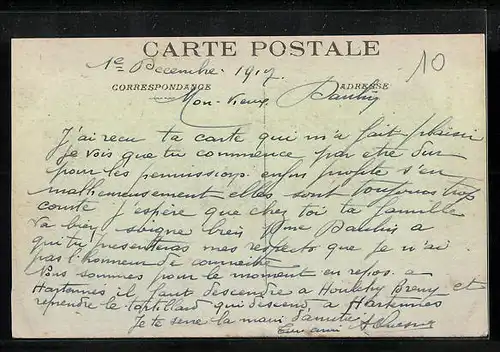 CARTE POSTALE
10
1er Decembre 1917.
CORRESPONDANCE
ADRESSE
Mon Vieux
J'ai recu ta carte qui m'a fait plaisir
Je vois que tu commence par etre dur
pour les permissions enfin profite s'en
malheureusement elles sont toujours trop
courte J'espère que chez toi ta famille
va bien soigne bien Mme a
qui tu presenteras mes respects que je n'ai
pas l'honneur de connaitre
Nous sommes pour le moment en repos a
Hartennes il faut descendre a et
reprendre le tortillard qui descend a Hartennes
Je te serre la main d'amitié
Ton ami